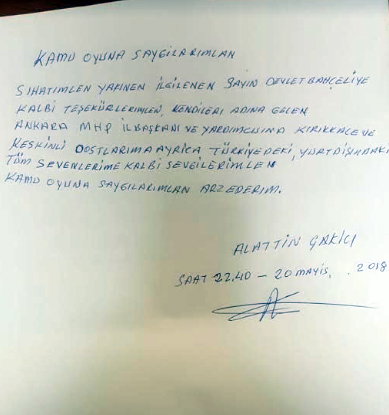 KAMU OYUNA SAYGILARIMLAN
SIHATIMLEN YAKINEN İLGİLENEN SAYIN DEVLET BAHÇELİYE
KALBİ TEŞEKÜRLERİMLEN, KENDİLERİ ADINA GELEN
ANKARA MHP İL BAŞKANI VE YARDIMCISINA KIRIKKALE VE
KESKİNLİ DOSTLARIMA AYRICA TÜRKİYEDEKİ, YURT DIŞINDAKİ
TÜM SEVENLERİME KALBİ SEVGİLERİMLEN
KAMU OYUNA SAYGILARIMLAN ARZEDERİM.
ALATTİN ÇAKICI
SAAT 22.40 – 20 MAYIS, . 2018